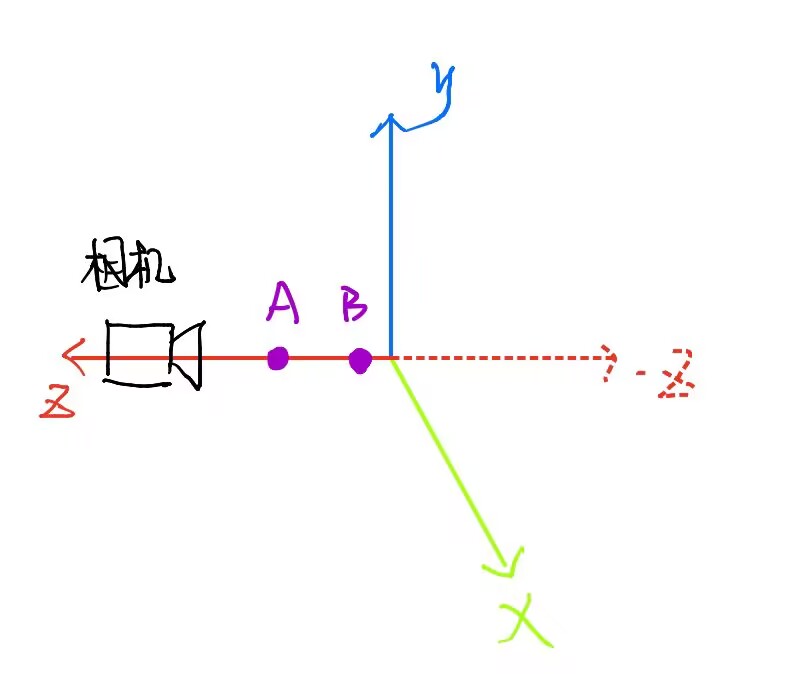 y
相机
A B
z
-z
x